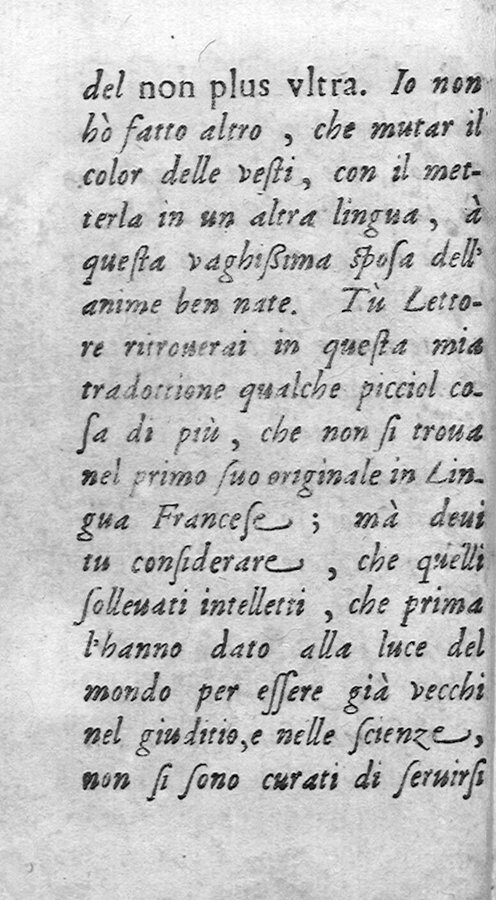 del non plus vltra. Io non
hò fatto altro , che mutar il
color delle veſti , con il met-
terla in un altra lingua , à
queſta vaghiſſima ſpoſa dell'
anime ben nate. Tù Letto-
re ritrouerai in queſta mia
tradottione qualche picciol co-
ſa di più , che non ſi troua
nel primo ſuo originale in Lin-
gua Franceſe ; mà deui
tu conſiderare , che quelli
ſolleuati intelletti , che prima
l'hanno dato alla luce del
mondo per eſſere già vecchi
nel giuditio,e nelle ſcienze ,
non ſi ſono curati di ſeruirſi